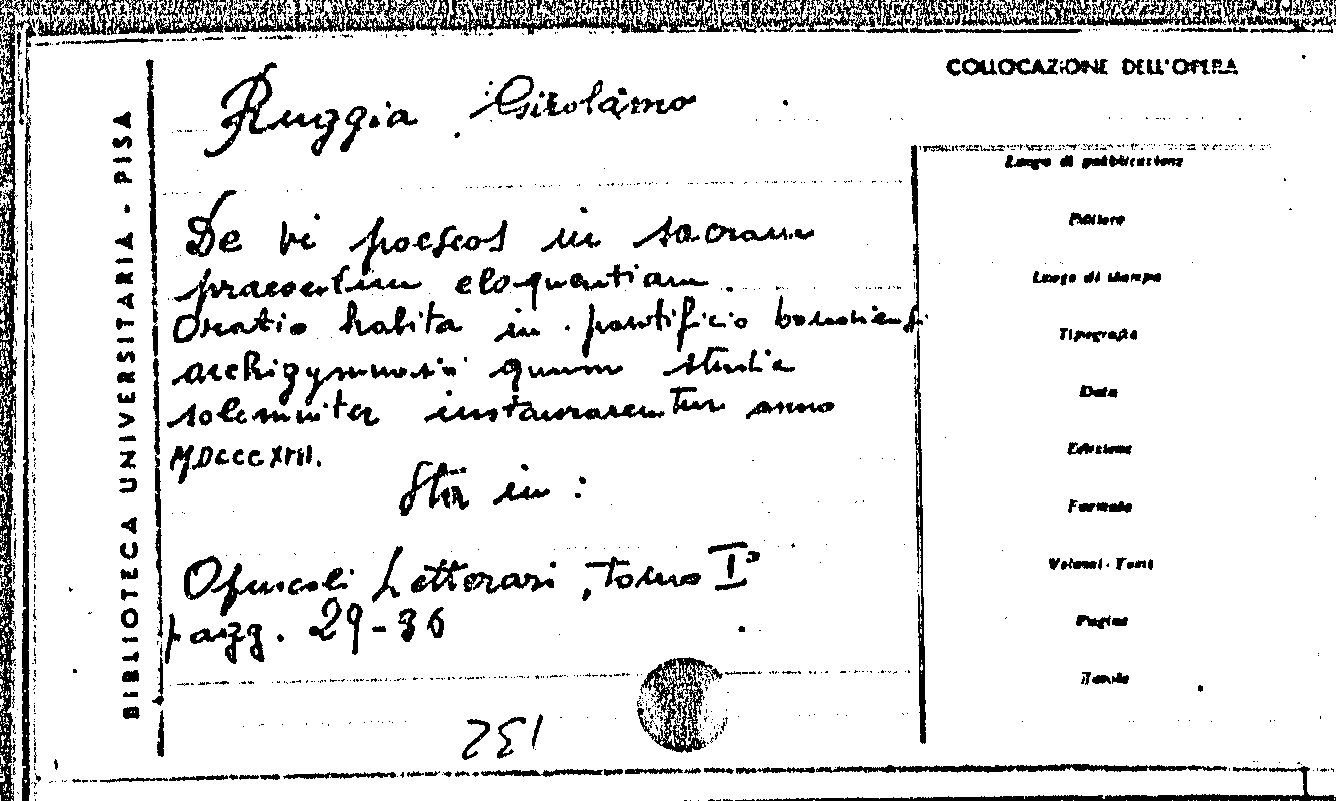 BIBLIOTECA UNIVERSITARIA - PISA
COLLOCAZIONE DELL'OPERA
Ruggia Girolamo
De vi poeseos in sacram
praesertim eloquentiam.
Oratio habita in pontificio bononiensi
archigymnasii quum studia
solemniter instaurarentur anno
MDCCCXVII.
Sta in:
Opuscoli Letterari, tomo I°
pagg. 29-36
Luogo di pubblicazione
Editore
Luogo di stampa
Tipografia
Data
Edizione
Formato
Volumi - Tomi
Pagine
Tavole